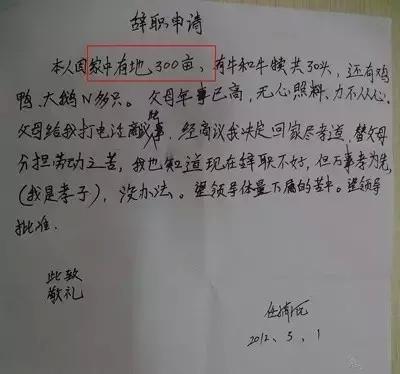 辞职申请
本人因家中有地300亩、有牛和牛犊共30头,还有鸡
鸭、大鹅N多只。父母年事已高,无心照料、力不从心。
父母给我打电话商议事,经商议我决定回家尽孝道,替父母
分担劳动之苦,我也知道现在辞职不好,但万事孝为先,
(我是孝子),没办法。望领导体量下属的苦中。望领导
批准.
此致
敬礼
任
2012、5、1